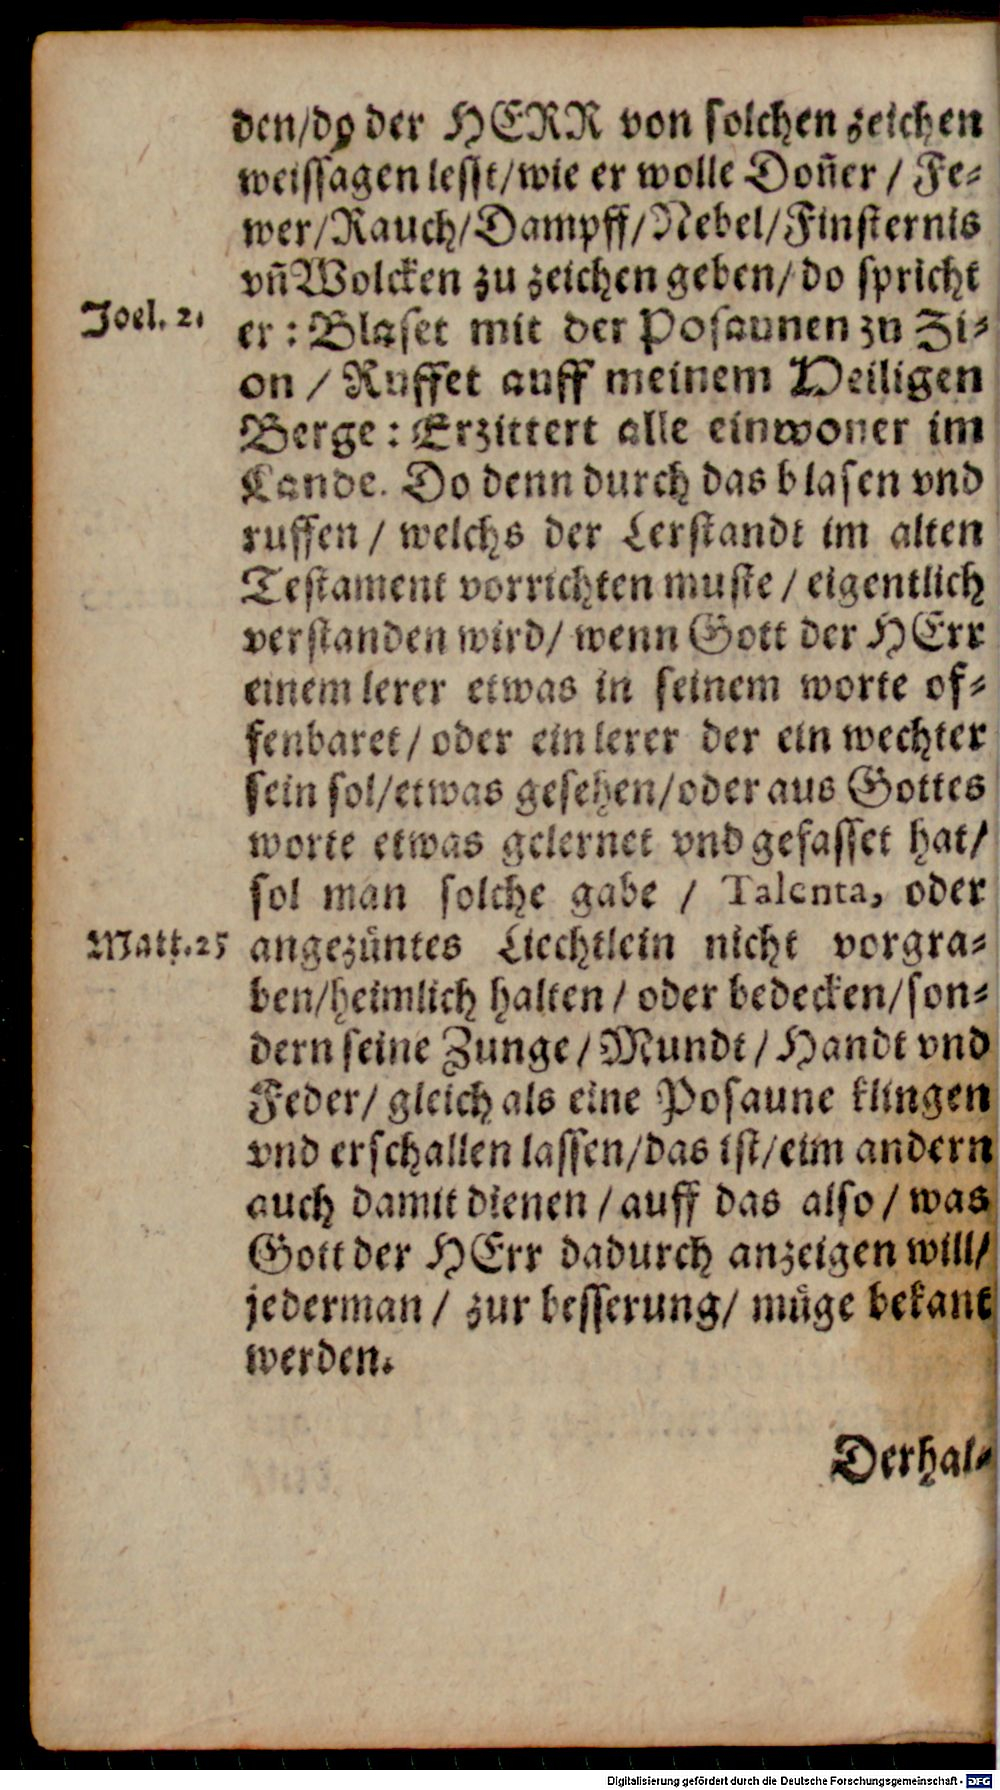 den/dz der HERR von solchen zeichen
weissagen lesst/wie er wolle Doñer / Fe-
wer/Rauch/Dampff/Nebel/Finsternis
vñ Wolcken zu zeichen geben/do spricht
Joel. 2.
er: Blaset mit der Posaunen zu Zi-
on / Ruffet auff meinem Heiligen
Berge: Erzittert alle einwoner im
Lande. Do denn durch das blasen vnd
ruffen / welchs der Lerstandt im alten
Testament vorrichten muste / eigentlich
verstanden wird/ wenn Gott der HErr
einem lerer etwas in seinem worte of-
fenbaret/ oder ein lerer der ein wechter
sein sol/etwas gesehen/oder aus Gottes
worte etwas gelernet vnd gefasset hat/
sol man solche gabe / Talenta, oder
Matt. 25
angezüntes Liechtlein nicht vorgra-
ben/heimlich halten / oder bedecken/son-
dern seine Zunge/ Mundt / Handt vnd
Feder/ gleich als eine Posaune klingen
vnd erschallen lassen/das ist/eim andern
auch damit dienen / auff das also / was
Gott der HErr dadurch anzeigen will/
jederman / zur besserung/ müge bekant
werden.
Derhal-
Digitalisierung gefördert durch die Deutsche Forschungsgemeinschaft - DFG